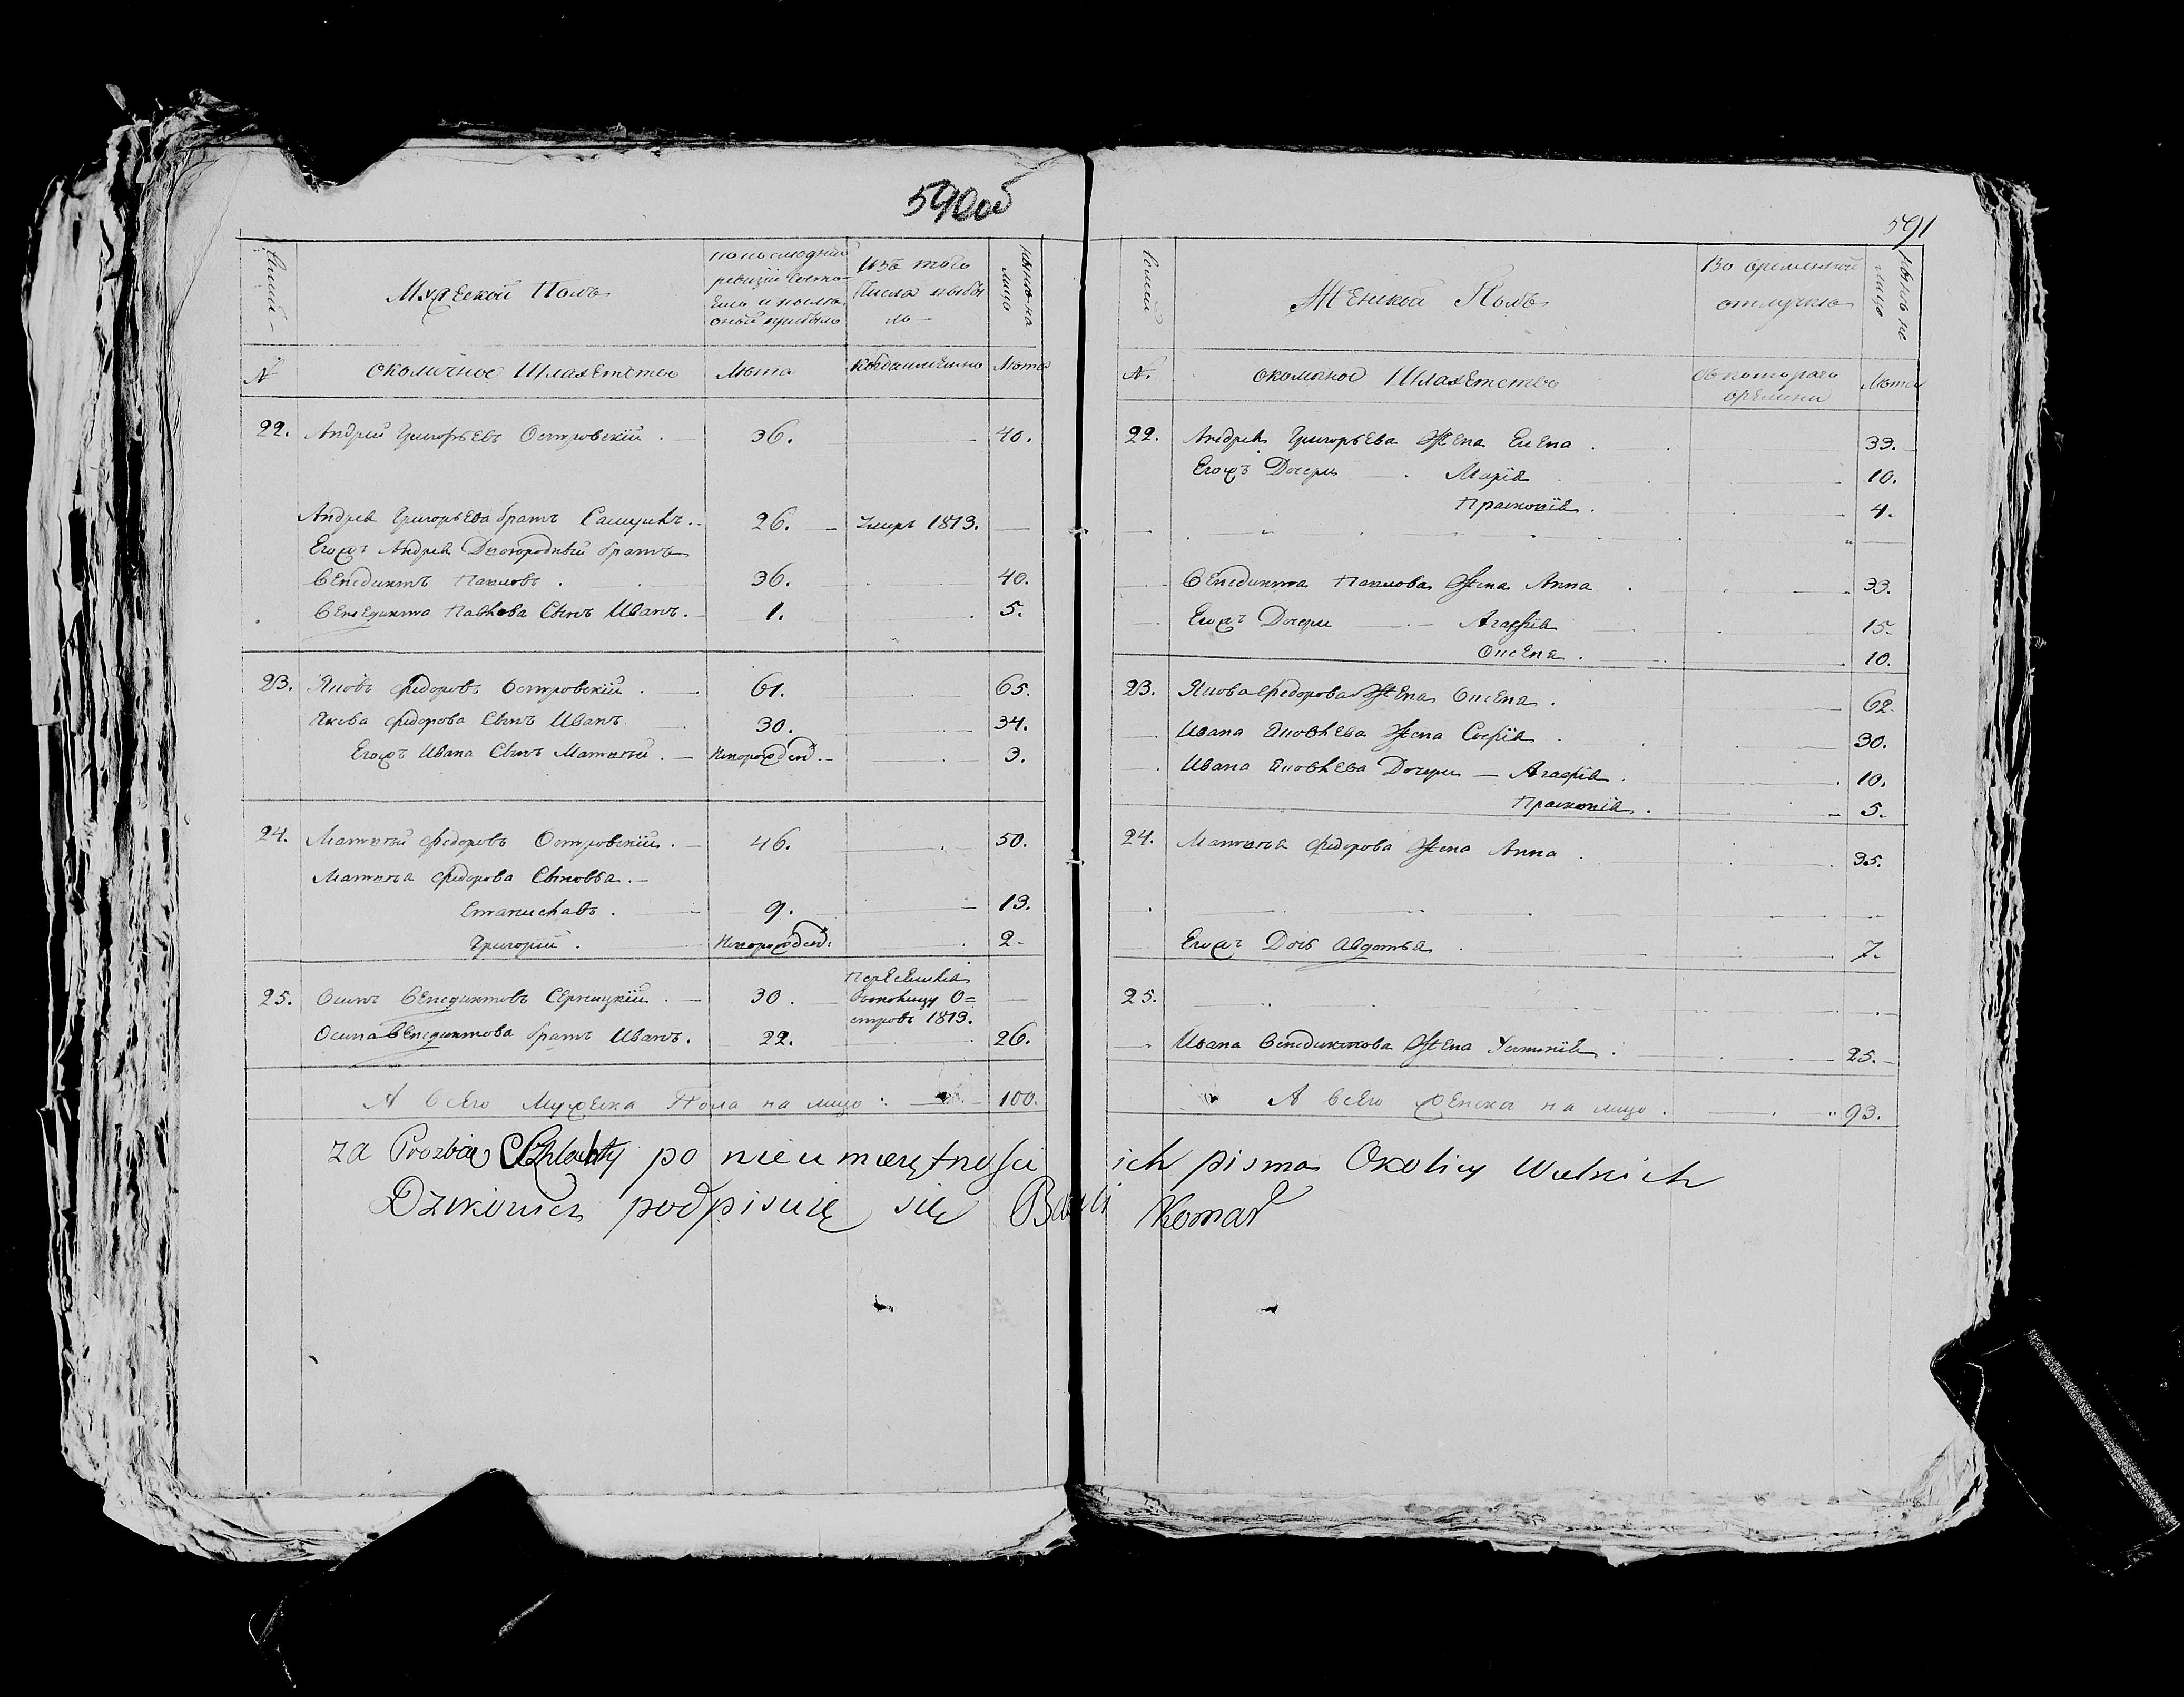 590об
Семьи
Мужеской Полъ
по последней
ревизіи состо-
яло и после
оной прибыло
Изъ того
Числа выбы
ло
Ныне на
лицо
N
околичное Шляхетство
Лета
Когда именно
Лета
22. Андрей Григорьевъ Островскій . 36. 40.
Андрея Григорьева братъ Самуилъ. 26. Умеръ 1813.
Егожъ Андрея Двоюродный братъ
Венедиктъ Павловъ . 36. 40.
Венедикта Павлова Сынъ Иванъ. 1. 5.
23. Яковъ Федоровъ Островскій . 61. 65.
Якова Федорова Сынъ Иванъ. 30. 34.
Егожъ Ивана Сынъ Матвей . Новорожден. 3.
24. Матвей Федоровъ Островскій . 46. 50.
Матвея Федорова Сыновья .
Станиславъ . 9. 13.
Григорій . Новорожден: 2.
25. Осипъ Венедиктовъ Серницкій . 30.
Переселился
въ околицу О=
стровъ 1813.
Осипа Венедиктова братъ Иванъ. 22. 26.
А всего Мужеска Пола на лицо : 100.
591
Семьи
Женской Полъ
Во временной
отлучке
Ныне на
лицо
N.
околичное Шляхетство
Съ котораго
времени
Лета
22. Андрея Григорьева Жена Елена . 33.
Егожъ Дочери Марія 10.
Прасковія . 4.
Венедикта Павлова Жена Анна . 33.
Егожъ Дочери Агафія 15.
Ксенія . 10.
23. Якова Федорова Жена Ксенія . 62.
Ивана Яковлева Жена Софія . 30.
Ивана Яковлева Дочери — Агафія . 10.
Прасковія . 5.
24. Матвея Федорова Жена Анна . 35.
Егожъ Дочь Авдотья . 7.
25.
Ивана Венедиктова Жена Устинія . 25.
А всего женска на лицо . 93.
za Prozbią Szlachty po nieumieiętnosci ich pisma Okolicy Wulkich
podpisuię się Komar